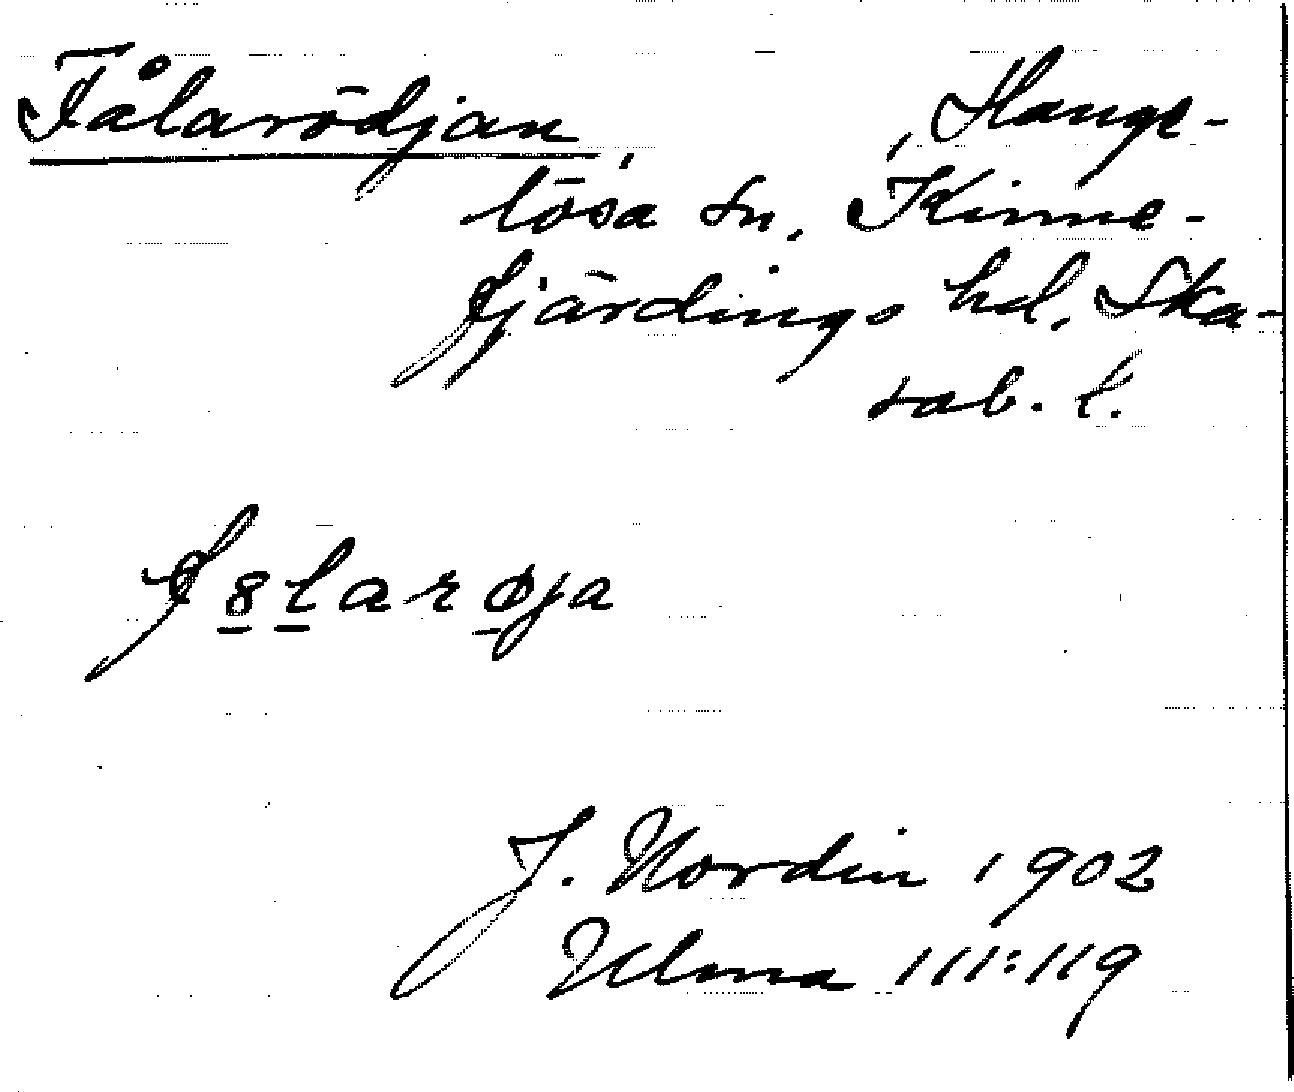 Fålarödjan, , Hange-
lösa sn, Kinne-
fjärdings hd, Ska-
rab. l.
f8larøja
J. Nordin 1902
Ulma 111:119